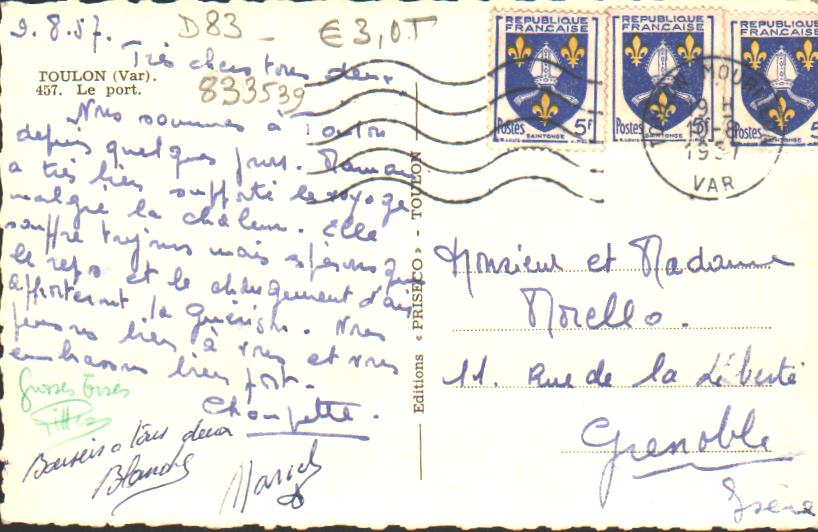 9.8.57.
D83 -
€ 3,0T
Très chers tous deux
TOULON (Var).
457. Le port.
833539
Nous sommes à Toulon
depuis quelques jours. Maman
a très bien supporté le voyage
malgré la chaleur. Elle
souffre toujours mais espérons que
le repos et le changement d'air
apporteront la guérison. Nous
pensons bien à vous et vous
embrassons bien fort.
Choupette.
Grosses bises
Baisers à tous deux
Blanche
Editions « PRISECO » - TOULON
REPUBLIQUE FRANÇAISE
Postes 5f
SAINTONGE
REPUBLIQUE FRANÇAISE
Postes 5f
SAINTONGE
REPUBLIQUE FRANÇAISE
Postes 5
SAINTONGE
19 H
1957
VAR
Monsieur et Madame
Morello.
11. Rue de la Liberté
Grenoble
Isère